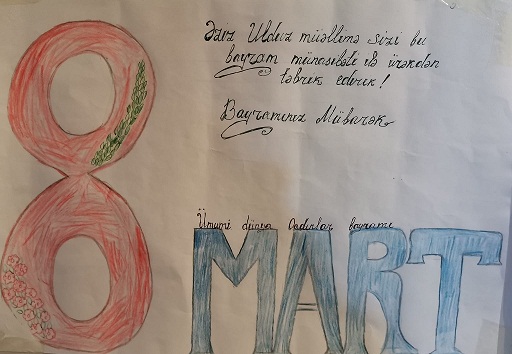 Əziz Ulduz müəllimə sizi bu
bayram münasibəti ilə ürəkdən
təbrik edirik!
Bayramınız Mübarək
Ümumi dünya Qadınlar bayramı
8 MART